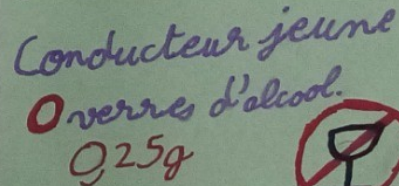 Conducteur jeune
0 verres d'alcool.
0,25g